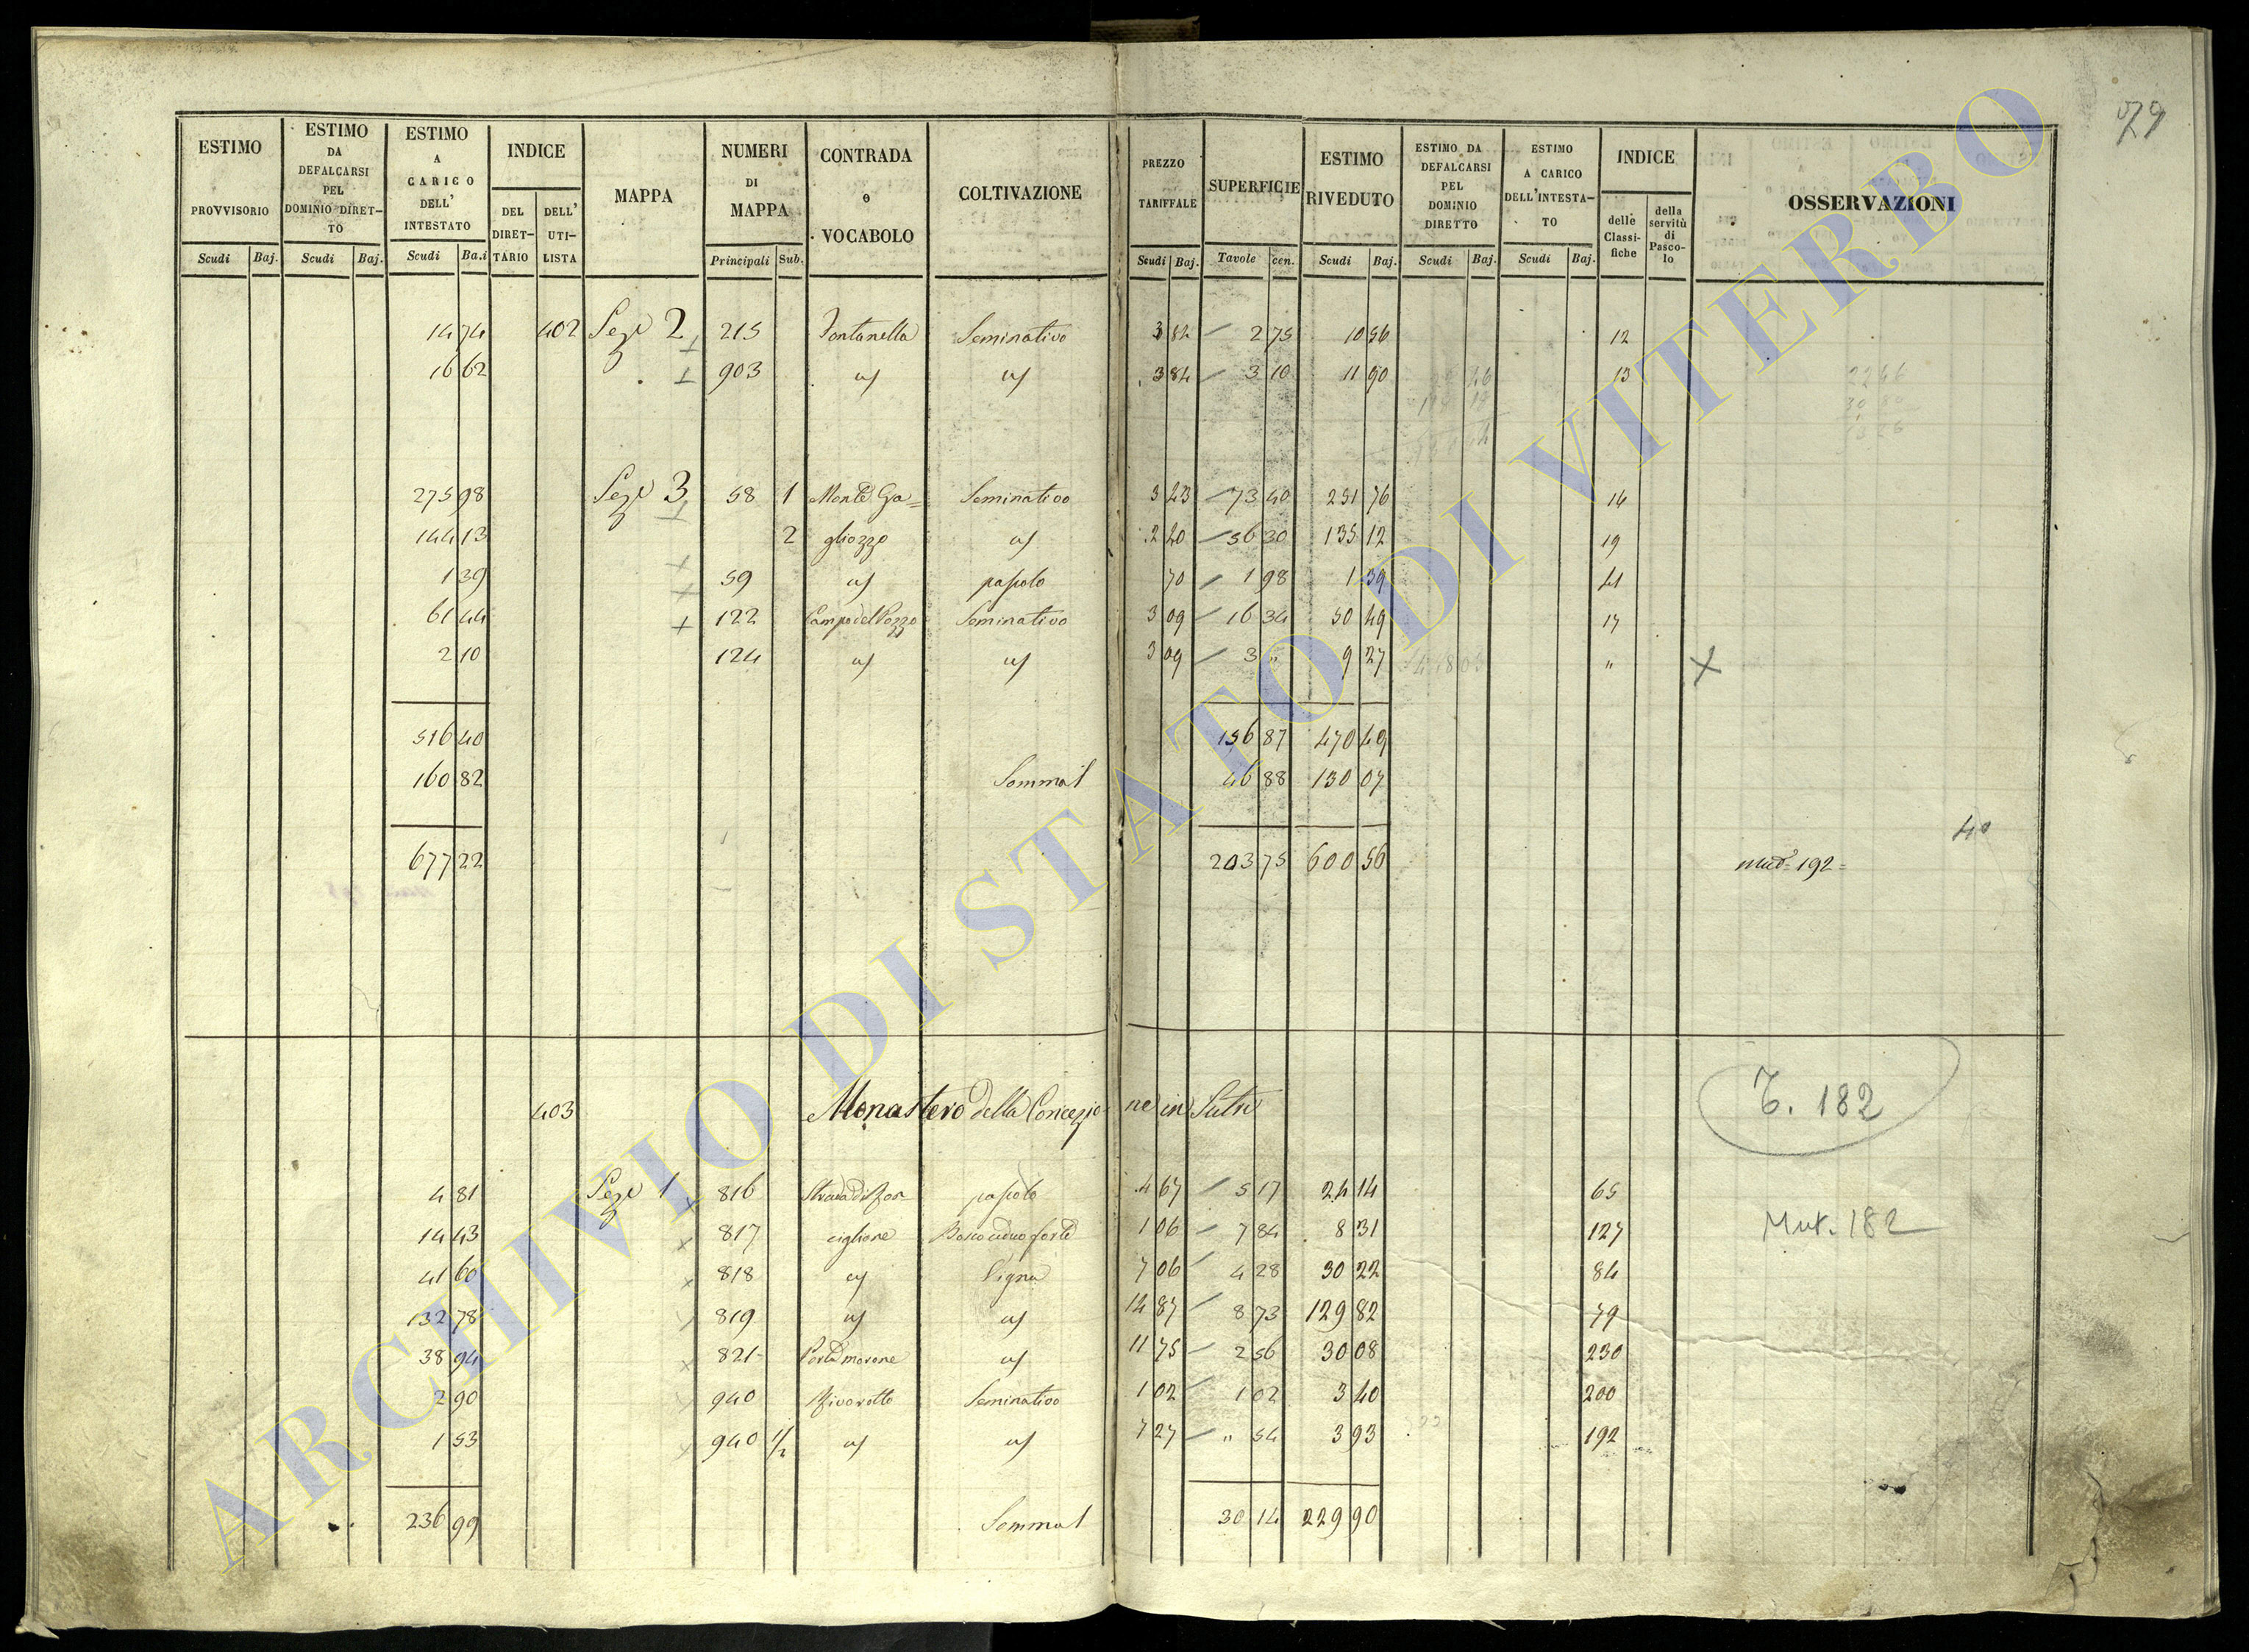 79
ESTIMO PROVVISORIO Scudi Baj.
ESTIMO DA DEFALCARSI PEL DOMINIO DIRET-TO Scudi Baj.
ESTIMO A CARICO DELL' INTESTATO Scudi Ba.i
INDICE DEL DIRET-TARIO DELL' UTI-LISTA
MAPPA
NUMERI DI MAPPA Principali Sub.
CONTRADA o VOCABOLO
COLTIVAZIONE
PREZZO TARIFFALE Scudi Baj.
SUPERFICIE Tavole cen.
ESTIMO RIVEDUTO Scudi Baj.
ESTIMO DA DEFALCARSI PEL DOMINIO DIRETTO Scudi Baj.
ESTIMO A CARICO DELL'INTESTA-TO Scudi Baj.
INDICE delle Classi-fiche della servitù di Pasco-lo
OSSERVAZIONI
14 74 402 Seze 2 215 Fontanella Seminativo 3 84 2 75 10 56 12
16 62 903 3 84 3 10 11 90 13
275 98 Seze 3 58 1 Monte Ga= Seminativo 3 43 73 40 251 76 14
144 13 2 gliozzo 2 40 56 30 135 12 19
1 39 59 pascolo 70 1 98 1 39 21
61 44 122 Campo del Pozzo Seminativo 3 09 16 34 50 49 17
2 10 124 3 09 3 " 9 27 " X
516 40 156 87 470 49
160 82 Somma 46 88 130 07
40
677 22 203 75 600 56 mut 192=
403 Monastero della Concezione in Sutri
T. 182
4 81 Seze 1 816 Strada di pascolo 4 67 5 17 24 14 65
14 43 817 ciglione Bosco ceduo forte 1 06 7 84 8 31 127 Mut. 182
41 60 818 Vigna 7 06 4 28 30 22 84
132 78 819 14 87 8 73 129 82 79
38 94 821 Porta morone 11 75 2 56 30 08 230
2 90 940 Rivorotto Seminativo 1 02 3 40 200
1 53 940 1/2 7 27 " 54 3 93 192
236 99 Somma 30 14 229 90
ARCHIVIO DI STATO DI VITERBO